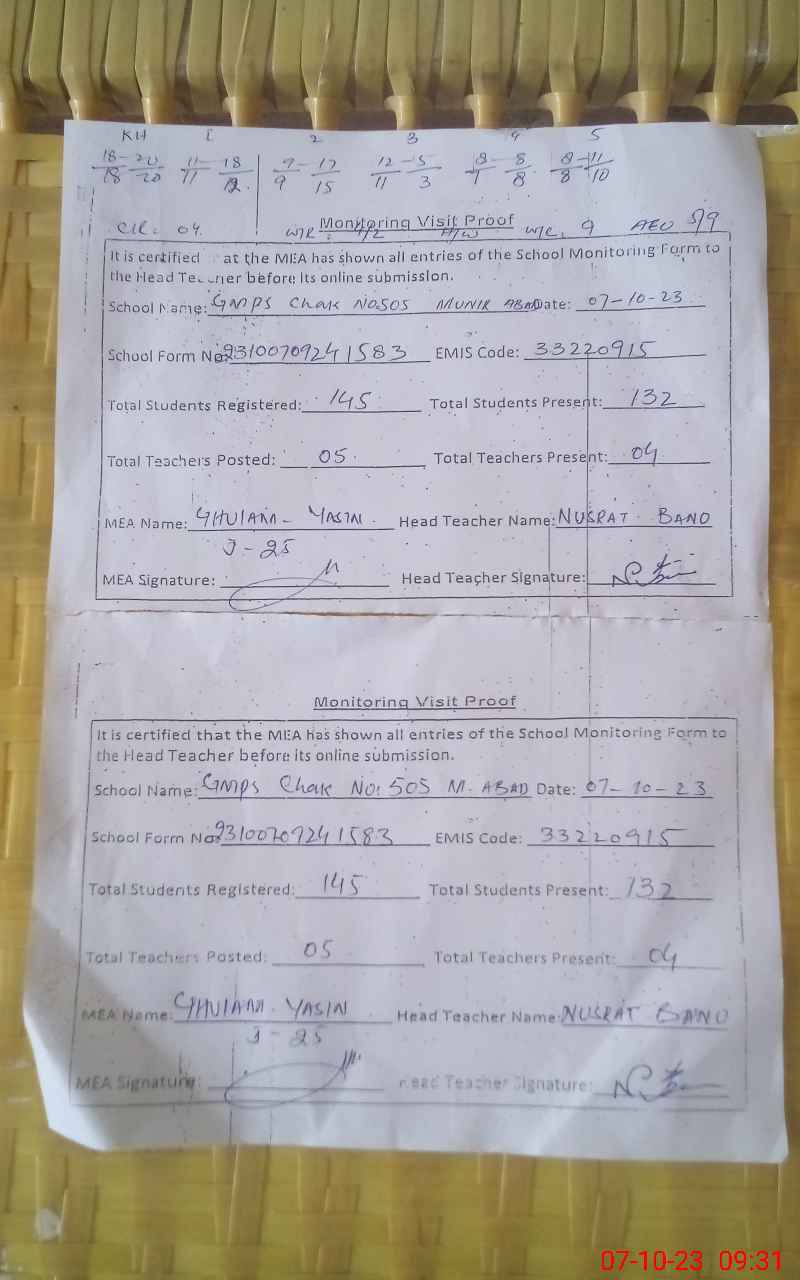 KH 1 2 3 4 5
18 - 20 11 - 18 9 - 17 12 - 5 8 - 8 8 - 11
18 20 11 12 9 15 11 3 8 8 10
CR: 04 Monitoring Visit Proof W/R. 9 AEO 5/9
It is certified at the MEA has shown all entries of the School Monitoring Form to
the Head Teacher before its online submission.
School Name: GMPS Chak No.505 MUNIR ABAD Date: 07-10-23
School Form No: 2310070924 1583 EMIS Code: 33220915
Total Students Registered: 145 Total Students Present: 132
Total Teachers Posted: 05 Total Teachers Present: 04
MEA Name: GHULAM - YASIN Head Teacher Name: NUSRAT BANO
J-25
MEA Signature: Head Teacher Signature:
Monitoring Visit Proof
It is certified that the MEA has shown all entries of the School Monitoring Form to
the Head Teacher before its online submission.
School Name: GMPS Chak No: 505 M. ABAD Date: 07-10-23
School Form No: 2310070924 1583 EMIS Code: 33220915
Total Students Registered: 145 Total Students Present: 132
Total Teachers Posted: 05 Total Teachers Present: 04
MEA Name: GHULAM - YASIN Head Teacher Name: NUSRAT BANO
J-25
MEA Signature: Head Teacher Signature:
07-10-23 09:31